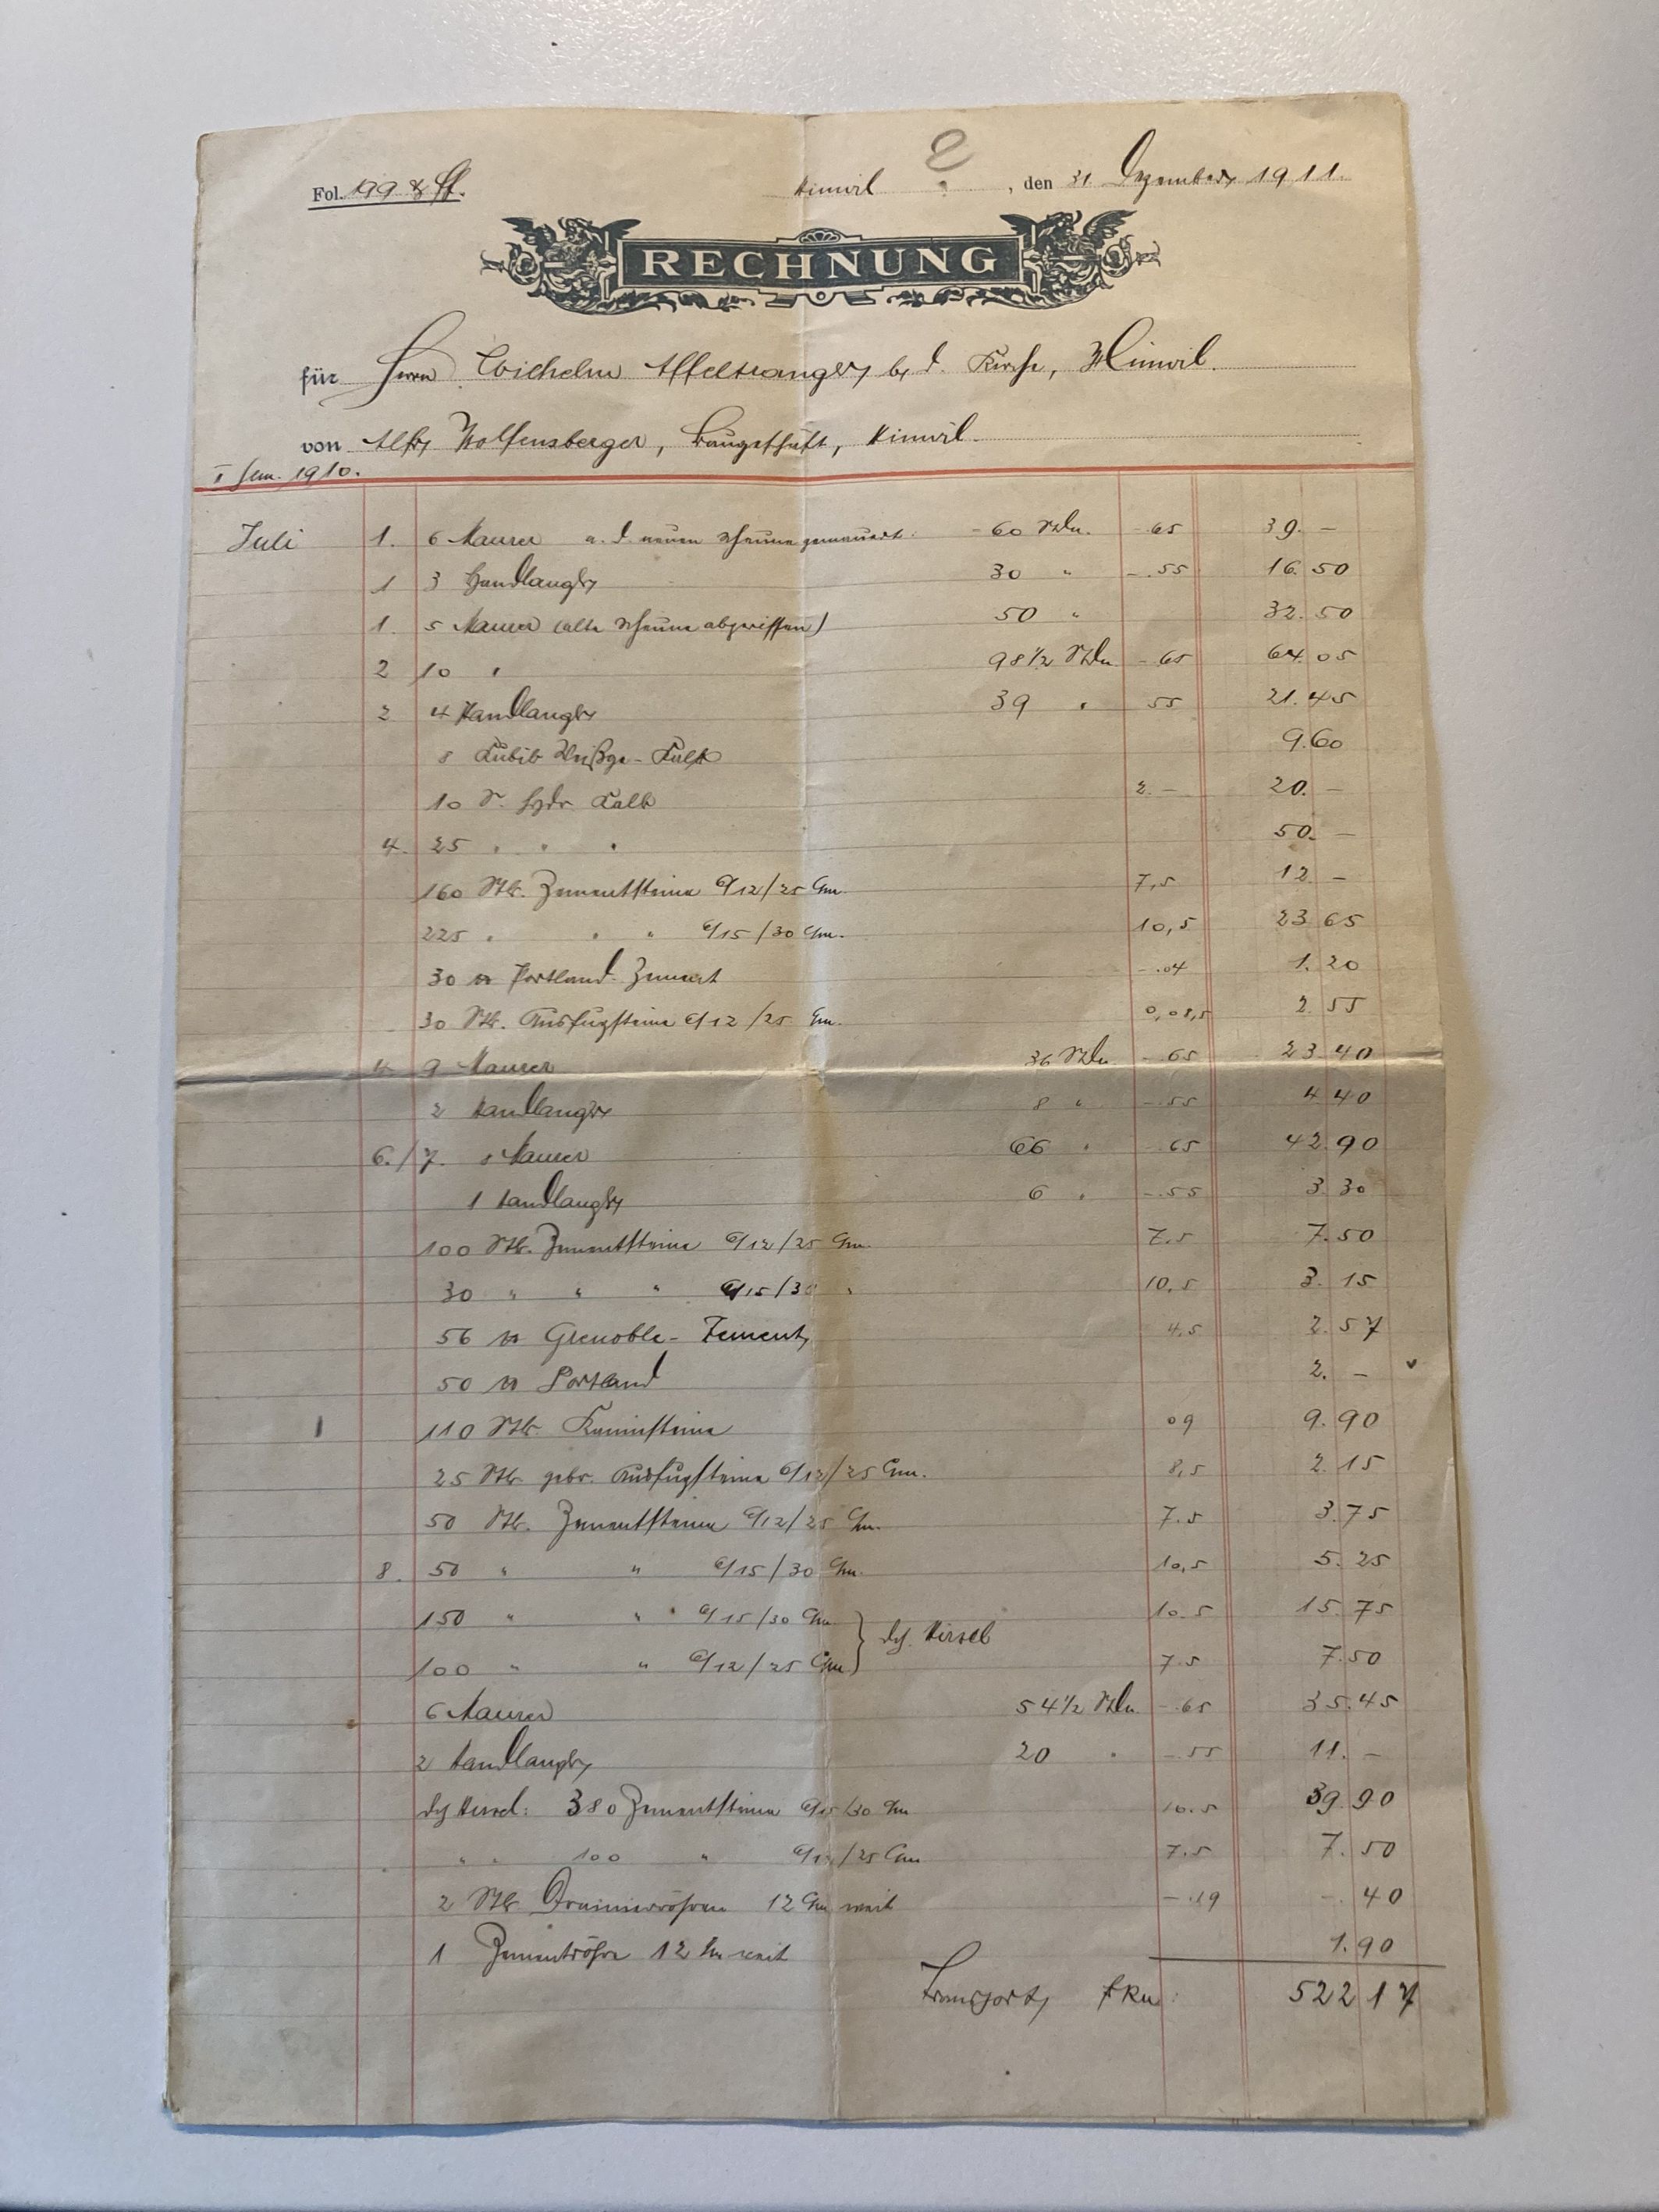 Fol. 199 & ff.
Hinwil, den 31. Dezember 1911.
RECHNUNG
für Herrn Wilhelm Affeltranger, b. d. Kirche, Hinwil.
von Alfr. Wolfensberger, Baugeschäft, Hinwil.
II Sem. 1910.
Juli 1. 6 Maurer a. d. neuen Scheune gemauert. 60 Stdn. -.65 39.-
1 3 Handlanger 30 " -.55 16.50
1. 5 Maurer (alte Scheune abgerissen) 50 " 32.50
2 10 " 98 1/2 Stdn -.65 64.05
2 4 Handlanger 39 " 55 21.45
8 Kübel Kalk 9.60
10 S. hydr. Kalk 2.- 20.-
4. 25 " " " 50.-
160 Stk. Zementsteine 6/12/25 Cm. 7,5 12.-
225 " " " 6/15/30 Cm. 10,5 23.65
30 kg Portland-Zement -.04 1.20
30 Stk. 6/12/25 Cm. 0,08,5 2.55
4. 9 Maurer 36 Stdn -.65 23.40
2 Handlanger 8 " -.55 4.40
6./7. 8 Maurer 66 " .65 42.90
1 Handlanger 6 " -.55 3.30
100 Stk. Zementsteine 6/12/25 Cm. 7.5 7.50
30 " " " 6/15/30 " 10,5 3.15
56 kg Grenoble-Zement, 4,5 2.57
50 kg Portland 2.-
110 Stk. Kaminsteine 09 9.90
25 Stk. gebr. 6/12/25 Cm. 8,5 2.15
50 Stk. Zementsteine 6/12/25 Cm. 7.5 3.75
8. 50 " " 6/15/30 Cm. 10,5 5.25
150 " " " 6/15/30 Cm. } dch. 10.5 15.75
100 " " 6/12/25 Cm. 7.5 7.50
6 Maurer 54 1/2 Stdn -.65 35.45
2 Handlanger 20 " -.55 11.-
dch. 380 Zementsteine 6/15/30 Cm 10.5 39.90
" " 100 " 6/12/25 Cm 7.5 7.50
2 Stk. Drainierröhren 12 Cm weit -.19 -.40
1 Zementröhre 12 Cm weit 1.90
Transport, fRn: 522 17